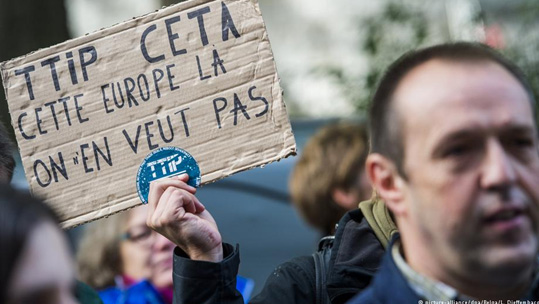 TTIP CETA
CETTE EUROPE LÀ
ON "EN VEUT PAS
TTIP
© picture-alliance/dpa/Belga/L. Dieffembacq